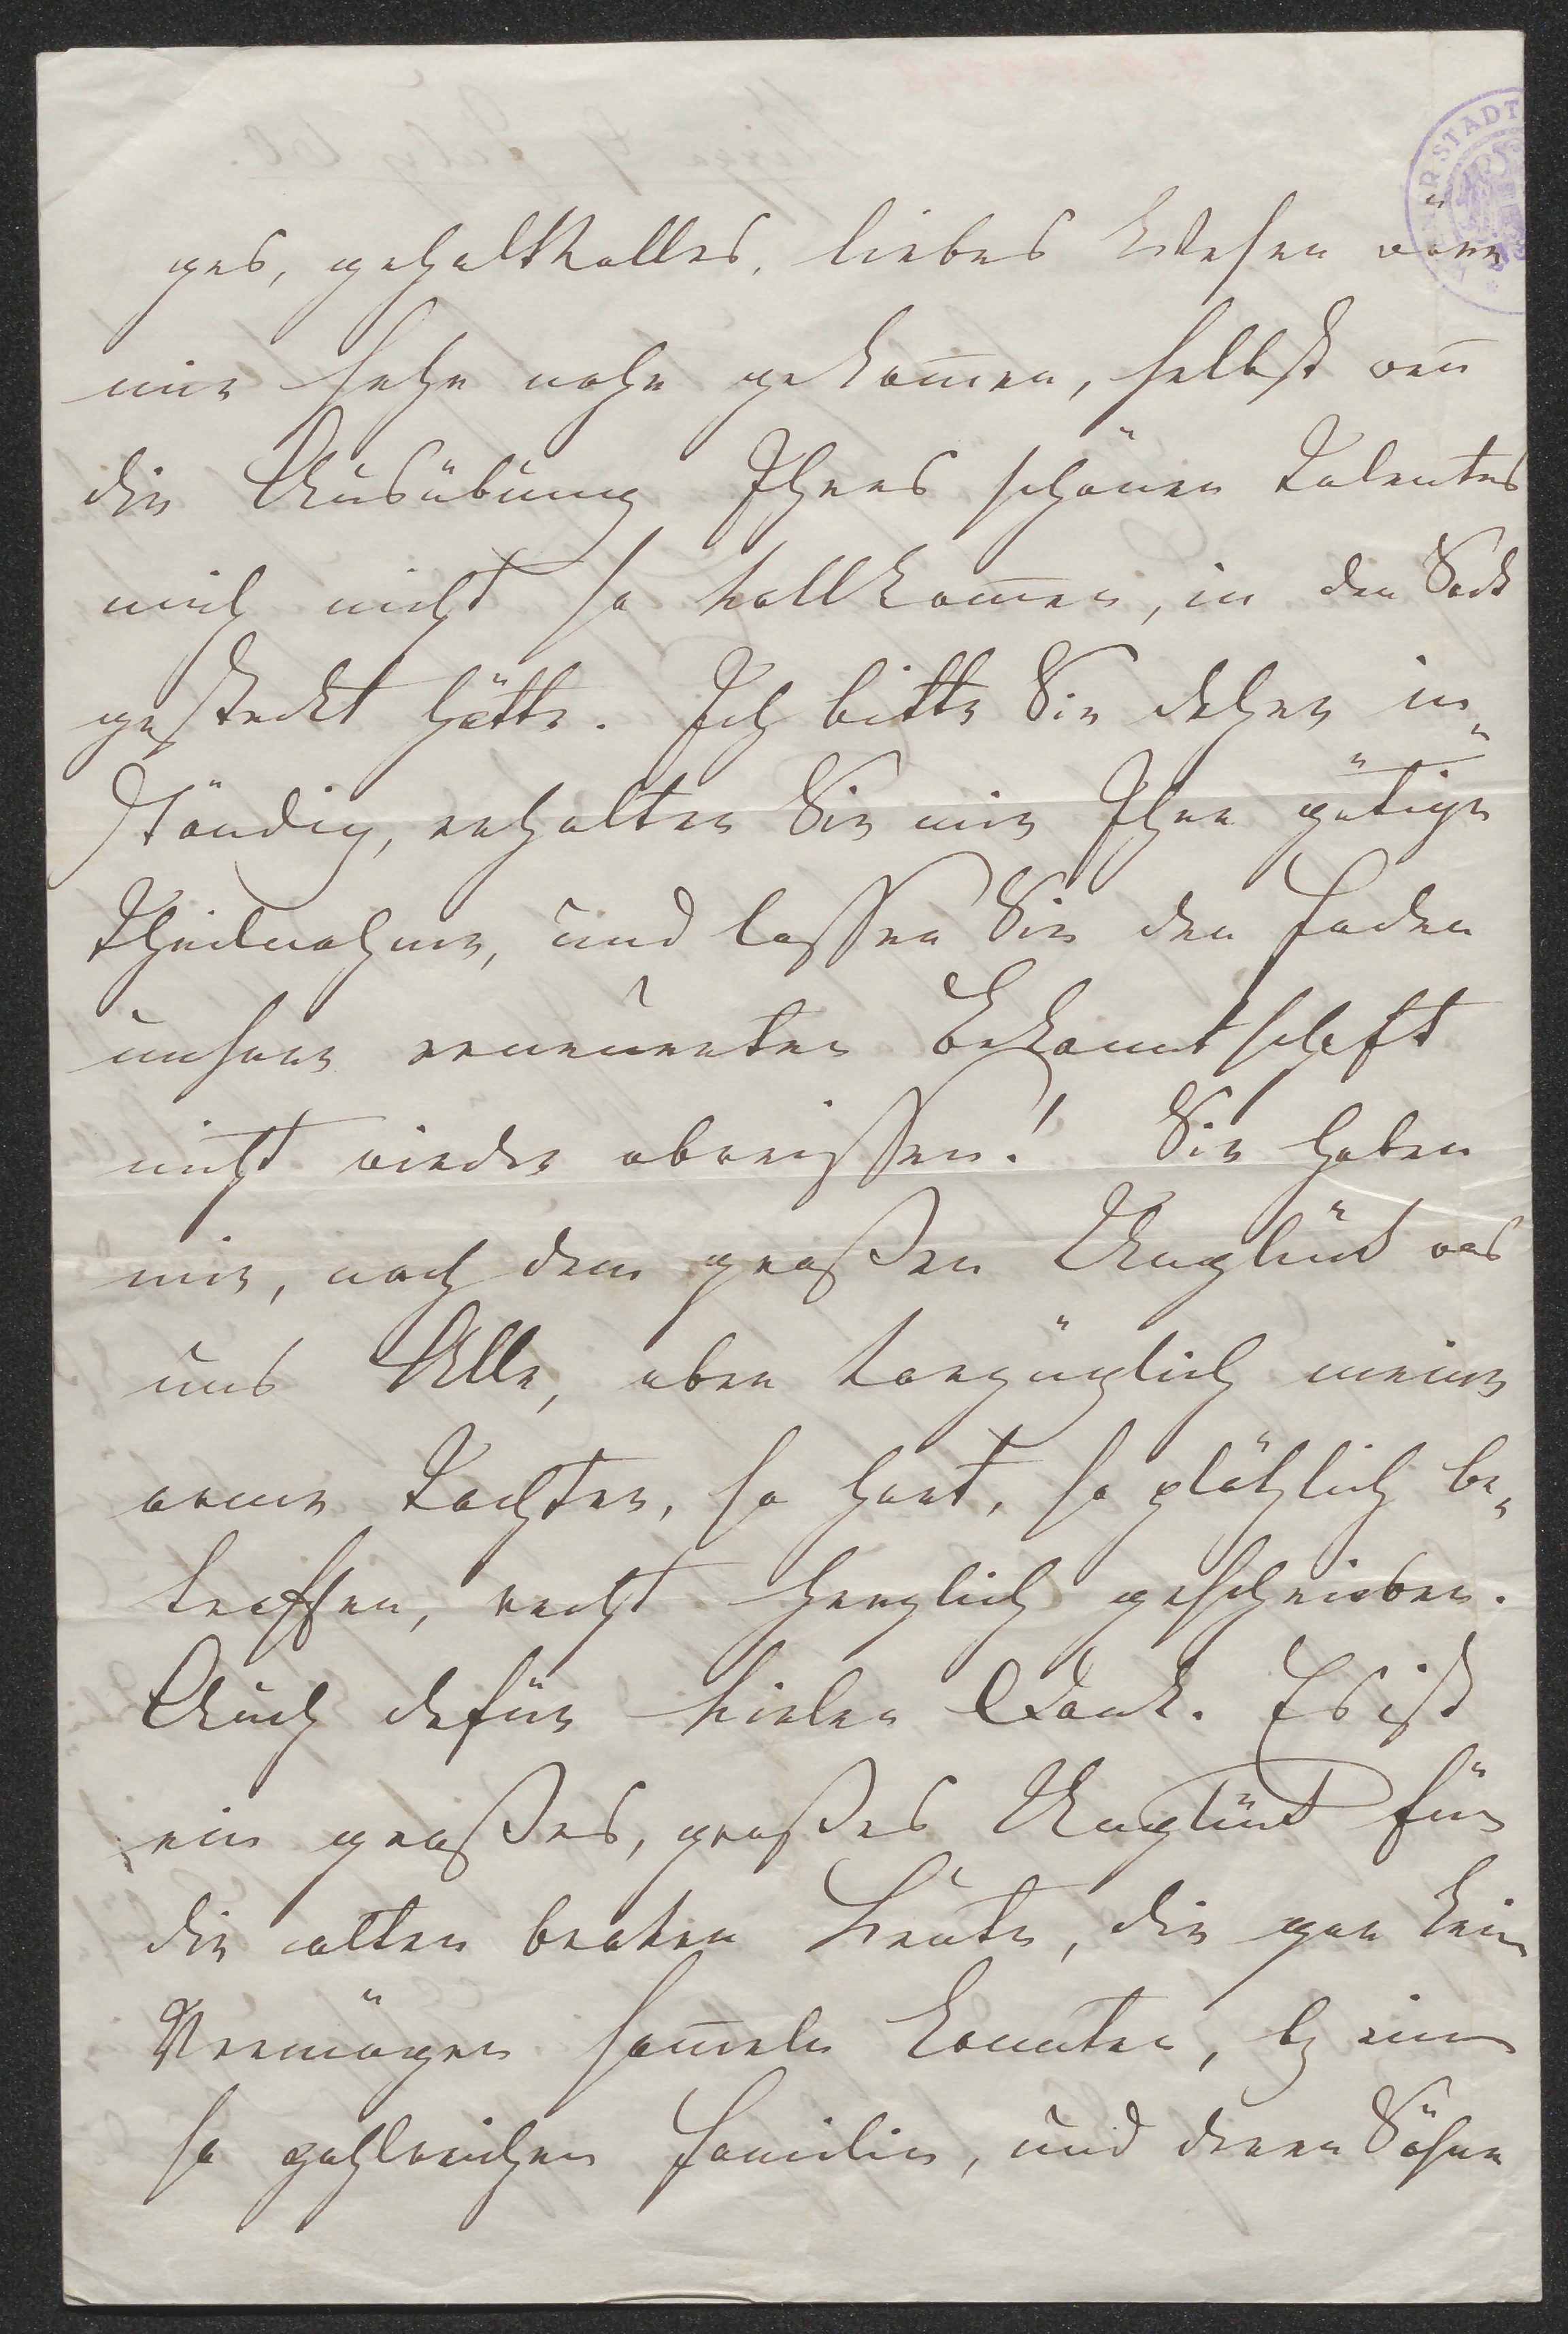 ges, gehaltvolles, liebes Wesen wäre
mir sehr nahe gekom̄en, selbst wen̄
die Ausübung Ihres schönen Talentes
mich nicht so vollkom̄en, in den Sack
gesteckt hätte. Ich bitte Sie daher in„
ständig, erhalten Sie mir Ihre gütige
Theilnahme, und lassen Sie den Faden
unserer erneuerten Bekanntschaft
nicht wieder abreissen! Sie haben
mir, nach dem großen Unglück was
uns Alle, aber vorzüglich meine
arme Tochter, so hart, so plötzlich be„
troffen, recht herzlich geschrieben.
Auch dafür vielen Dank. Es ist
ein großes, großes Unglück für
die alten braven Leute, die gar kein
Vermögen sam̄eln konnten, by einer
so zahlreichen Familie, und deren Söhne
STADT